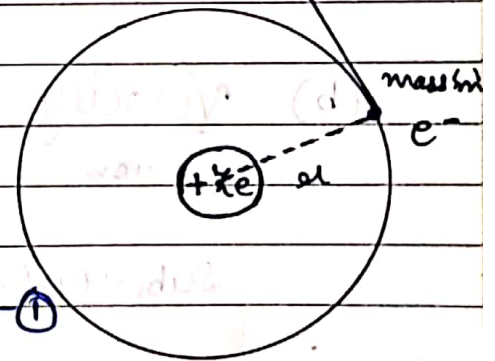 mass 'm'
e⁻
+Ze r
①